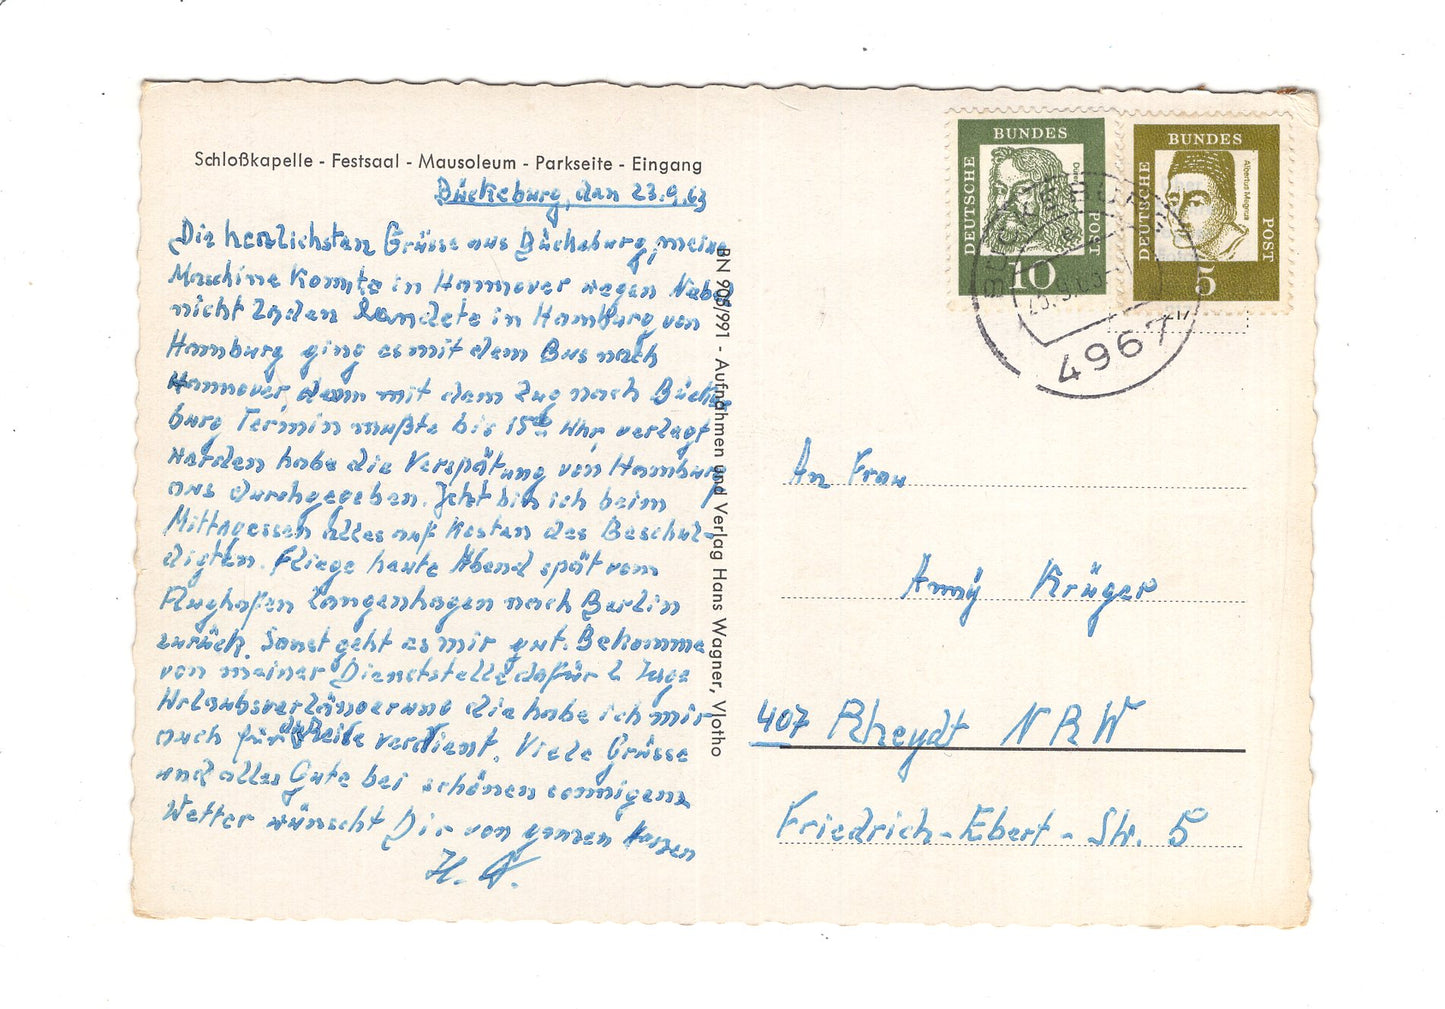 Schloßkapelle - Festsaal - Mausoleum - Parkseite - Eingang
Bückeburg, den 23.9.63
Die herzlichsten Grüsse aus Bückeburg, meine
Maschine konnte in Hannover wegen Nebel
nicht laden landete in Hamburg von
Hamburg ging es mit dem Bus nach
Hannover, dann mit dem Zug nach Bücke
burg Termin mußte bis 15 Uhr verlegt
werden habe die Verspätung von Hamburg
aus durchgegeben. Jetzt bin ich beim
Mittagessen alles auf Kosten des Beschul-
digten. Fliege heute Abend spät vom
Flughafen Langenhagen nach Berlin
zurück. Sonst geht es mir gut. Bekomme
von meiner Dienststelle dafür 2 Tage
Urlaubsverlängerung die habe ich mir
auch für die Reise verdient. Viele Grüsse
und alles Gute bei schönen sonnigem
Wetter wünscht Dir von ganzen Herzen
BN 905/991 - Aufnahmen und Verlag Hans Wagner, Vlotho
DEUTSCHE BUNDES POST
Dürer
10
DEUTSCHE BUNDES POST
Albertus Magnus
5
4967
An Frau
Anny Krüger
407 Rheydt NRW
Friedrich-Ebert-Str. 5